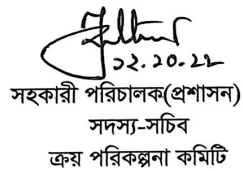 ১২.১০.২২
সহকারী পরিচালক(প্রশাসন)
সদস্য-সচিব
ক্রয় পরিকল্পনা কমিটি